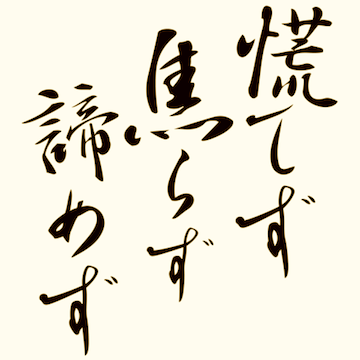 慌てず
焦らず
諦めず